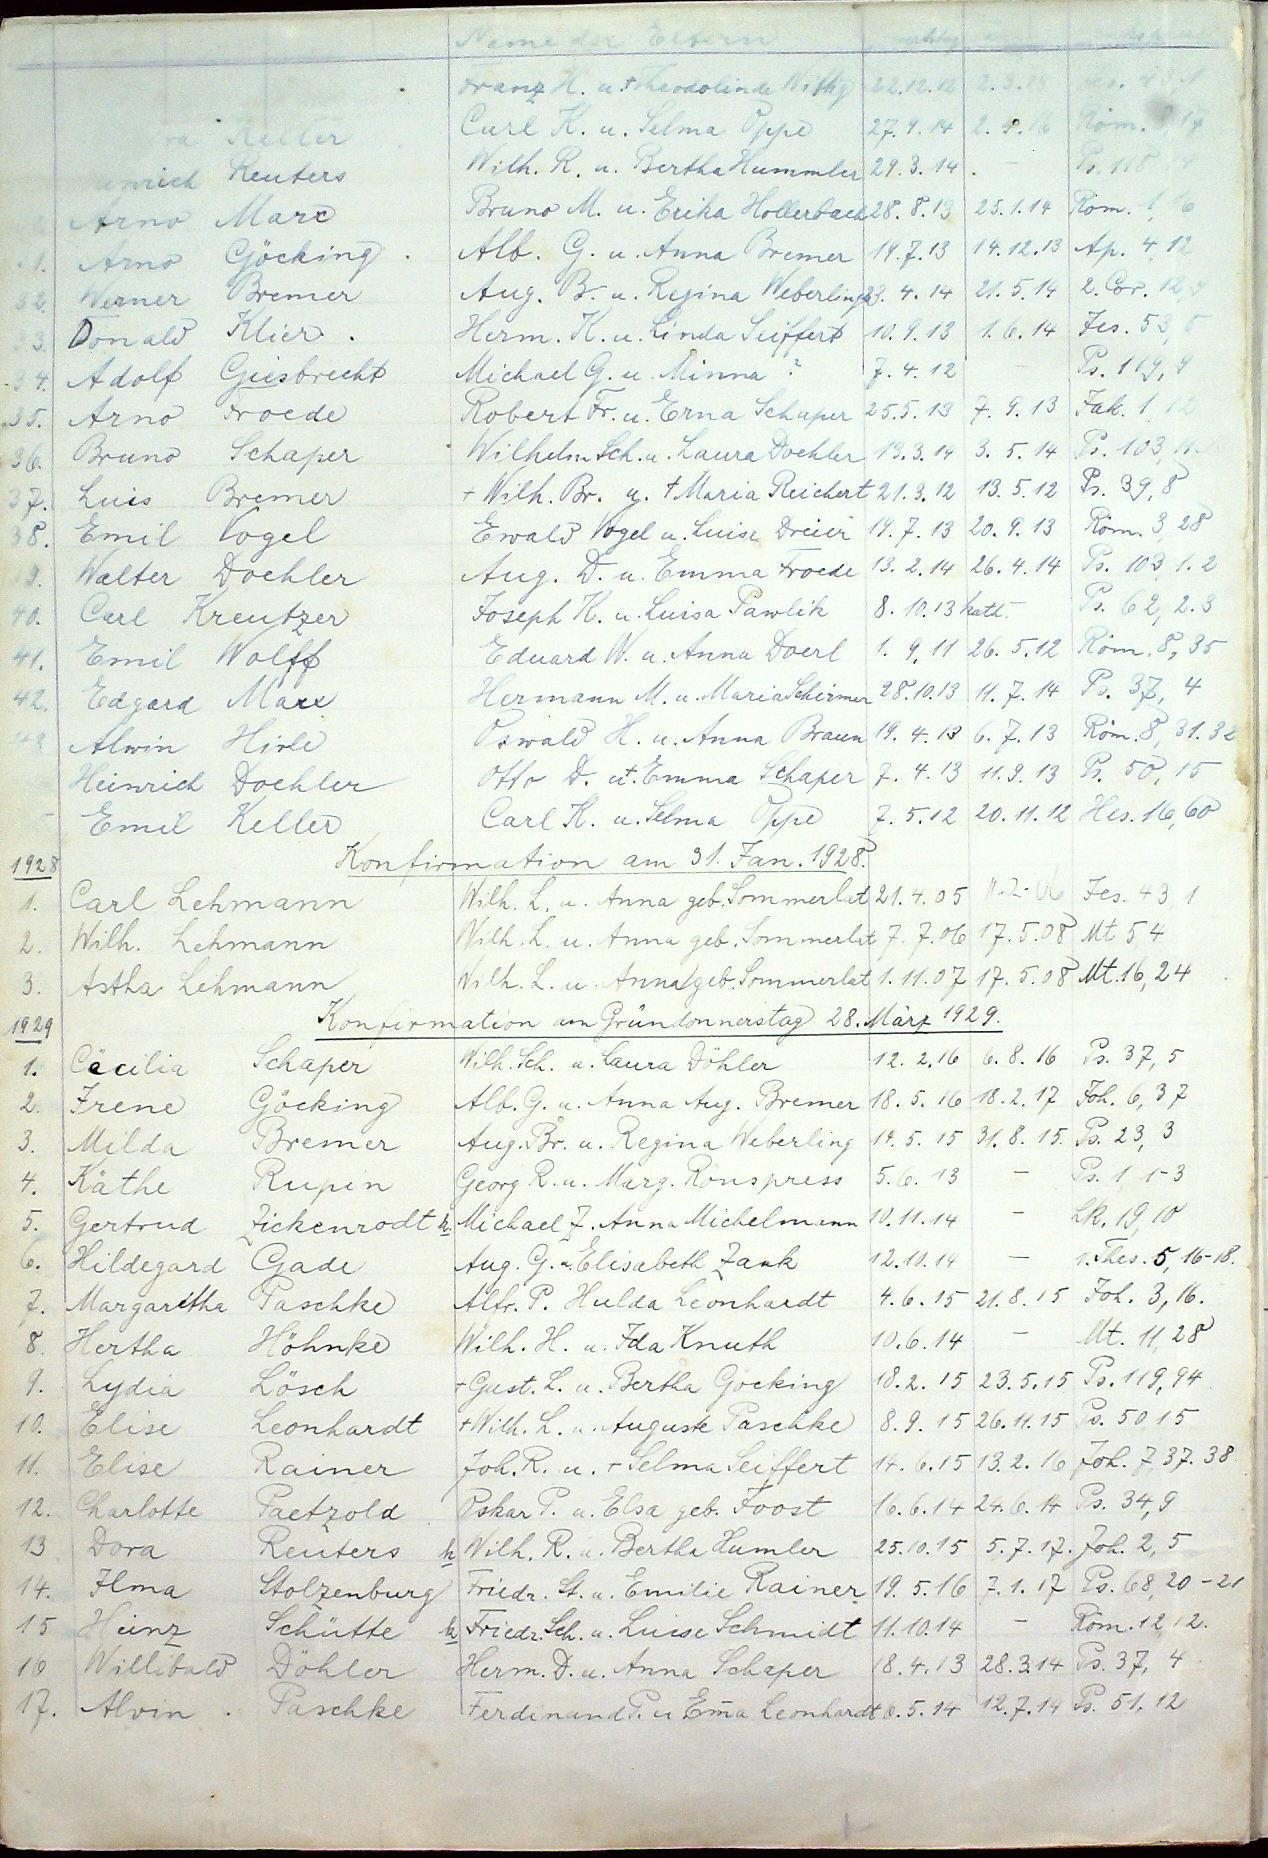 Name der Eltern
Franz H. u. + Theodolinde 22.12.12
Keller Carl K. u. Selma Oppe 27.9.14 Röm.
Reuters Wilh. R. u. Bertha Hummler 29.3.14 - Ps. 118
Arno Marx Bruno M. u. Erika Hollerbach 28.8.13 25.1.14 Röm. 1, 16
Arno Göcking Alb. G. u. Anna Bremer 19.7.13 14.12.13 Ap. 4, 12
32. Werner Bremer Aug. B. u. Regina Weberling 23.4.14 21.5.14 2. Cor. 12, 9
33. Donald Klier Herm. K. u. Linda Seiffert 10.9.13 1.6.14 Jes. 53, 5
34. Adolf Giesbrecht Michael G. u. Minna ? 7.4.12 - Ps. 119, 9
35. Arno Froede Robert Fr. u. Erna Schaper 25.5.13 7.9.13 Jak. 1, 12
36. Bruno Schaper Wilhelm Sch. u. Laura Doehler 13.3.14 3.5.14 Ps. 103,
37. Luis Bremer + Wilh. Br. u. + Maria Reichert 21.3.12 13.5.12 Ps. 39, 8
38. Emil Vogel Ewald Vogel u. Luise Dreier 19.7.13 20.9.13 Röm. 3, 28
39. Walter Doehler Aug. D. u. Emma Froede 13.2.14 26.4.14 Ps. 103, 1.2
40. Carl Kreutzer Joseph K. u. Luisa Pawlik 8.10.13 kath. - Ps. 62, 2.3
41. Emil Wolff Eduard W. u. Anna Doerl 1.9.11 26.5.12 Röm. 8, 35
42. Edgard Marx Hermann M. u. Maria Schirmer 28.10.13 11.7.14 Ps. 37, 4
43. Alwin Hirle Oswald H. u. Anna Braun 19.4.13 6.7.13 Röm. 8, 31.32
Heinrich Doehler Otto D. u. + Emma Schaper 7.4.13 11.9.13 Ps. 50, 15
Emil Keller Carl K. u. Selma Oppe 7.5.12 20.11.12 Hes. 16, 60
1928 Konfirmation am 31. Jan. 1928.
1. Carl Lehmann Wilh. L. u. Anna geb. Sommerlat 21.4.05 11.2.06 Jes. 43, 1
2. Wilh. Lehmann Wilh. L. u. Anna geb. Sommerlat 7.7.06 17.5.08 Mt 5, 4
3. Astha Lehmann Wilh. L. u. Anna geb. Sommerlat 1.11.07 17.5.08 Mt. 16, 24
1929 Konfirmation am Gründonnerstag 28. März 1929.
1. Cäcilia Schaper Wilh. Sch. u. Laura Döhler 12.2.16 6.8.16 Ps. 37, 5
2. Irene Göcking Alb. G. u. Anna Aug. Bremer 18.5.16 18.2.17 Joh. 6, 37
3. Milda Bremer Aug. Br. u. Regina Weberling 14.5.15 31.8.15. Ps. 23, 3
4. Käthe Rupin Georg R. u. Marg. Rönspress 5.6.13 - Ps. 1, 1-3
5. Gertrud Zickenrodt k. Michael Z. Anna Michelmann 10.11.14 - Lk. 19, 10
6. Hildegard Gade Aug. G. u. Elisabeth Zank 12.10.14 - 1. Thes. 5, 16-18.
7. Margaritha Paschke Alfr. P. Hulda Leonhardt 4.6.15 21.8.15 Joh. 3, 16.
8. Hertha Höhnke Wilh. H. u. Ida Knuth 10.6.14 - Mt. 11, 28
9. Lydia Lösch + Gust. L. u. Bertha Göcking 18.2.15 23.5.15 Ps. 119, 94
10. Elise Leonhardt + Wilh. L. u. Auguste Paschke 8.9.15 26.11.15 Ps. 50, 15
11. Elise Rainer Joh. R. u. + Selma Seiffert 14.6.15 13.2.16 Joh. 7, 37.38
12. Charlotte Paetzold Oskar P. u. Elsa geb. Joost 16.6.14 24.6.14 Ps. 34, 9
13 Dora Reuters k Wilh. R. u. Bertha Humler 25.10.15 5.7.17. Joh. 2, 5
14. Ilma Stolzenburg Friedr. St. u. Emilie Rainer 19.5.16 7.1.17 Ps. 68, 20-21
15 Heinz Schütte k Friedr. Sch. u. Luise Schmidt 11.10.14 - Röm. 12, 12.
16 Willibald Döhler Herm. D. u. Anna Schaper 18.4.13 28.3.14 Ps. 37, 4
17. Alvin Paschke Ferdinand P. u Em̄a Leonhardt 5.14 12.7.14 Ps. 51, 12